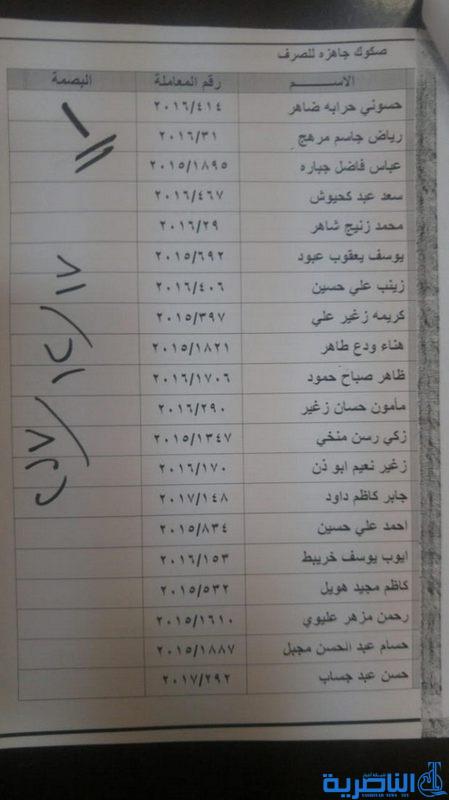 صكوك جاهزه للصرف
الاســـم رقم المعاملة البصمة
حسوني حرابه ضاهر ٢٠١٦/٤١٤
رياض جاسم مرهج ٢٠١٦/٣١
عباس فاضل جباره ٢٠١٥/١٨٩٥
سعد عبد كحيوش ٢٠١٦/٤٦٧
محمد زنيج شاهر ٢٠١٦/٢٩
يوسف يعقوب عبود ٢٠١٥/٦٩٢
زينب علي حسين ٢٠١٦/٤٠٦
كريمه زغير علي ٢٠١٥/٣٩٧
هناء ودع طاهر ٢٠١٥/١٨٢١
ظاهر صباح حمود ٢٠١٦/١٧٠٦
مأمون حسان زغير ٢٠١٦/٢٩٠
زكي رسن منخي ٢٠١٥/١٣٤٧
زغير نعيم ابو ذن ٢٠١٦/١٧٠
جابر كاظم داود ٢٠١٧/١٤٨
احمد علي حسين ٢٠١٥/٨٣٤
ايوب يوسف خريبط ٢٠١٦/١٥٣
كاظم مجيد هويل ٢٠١٥/٥٣٢
رحمن مزهر عليوي ٢٠١٥/١٦١٠
حسام عبد الحسن مجبل ٢٠١٥/١٨٨٧
حسن عبد جساب ٢٠١٧/٢٩٢
شبكة أخبار
الناصرية